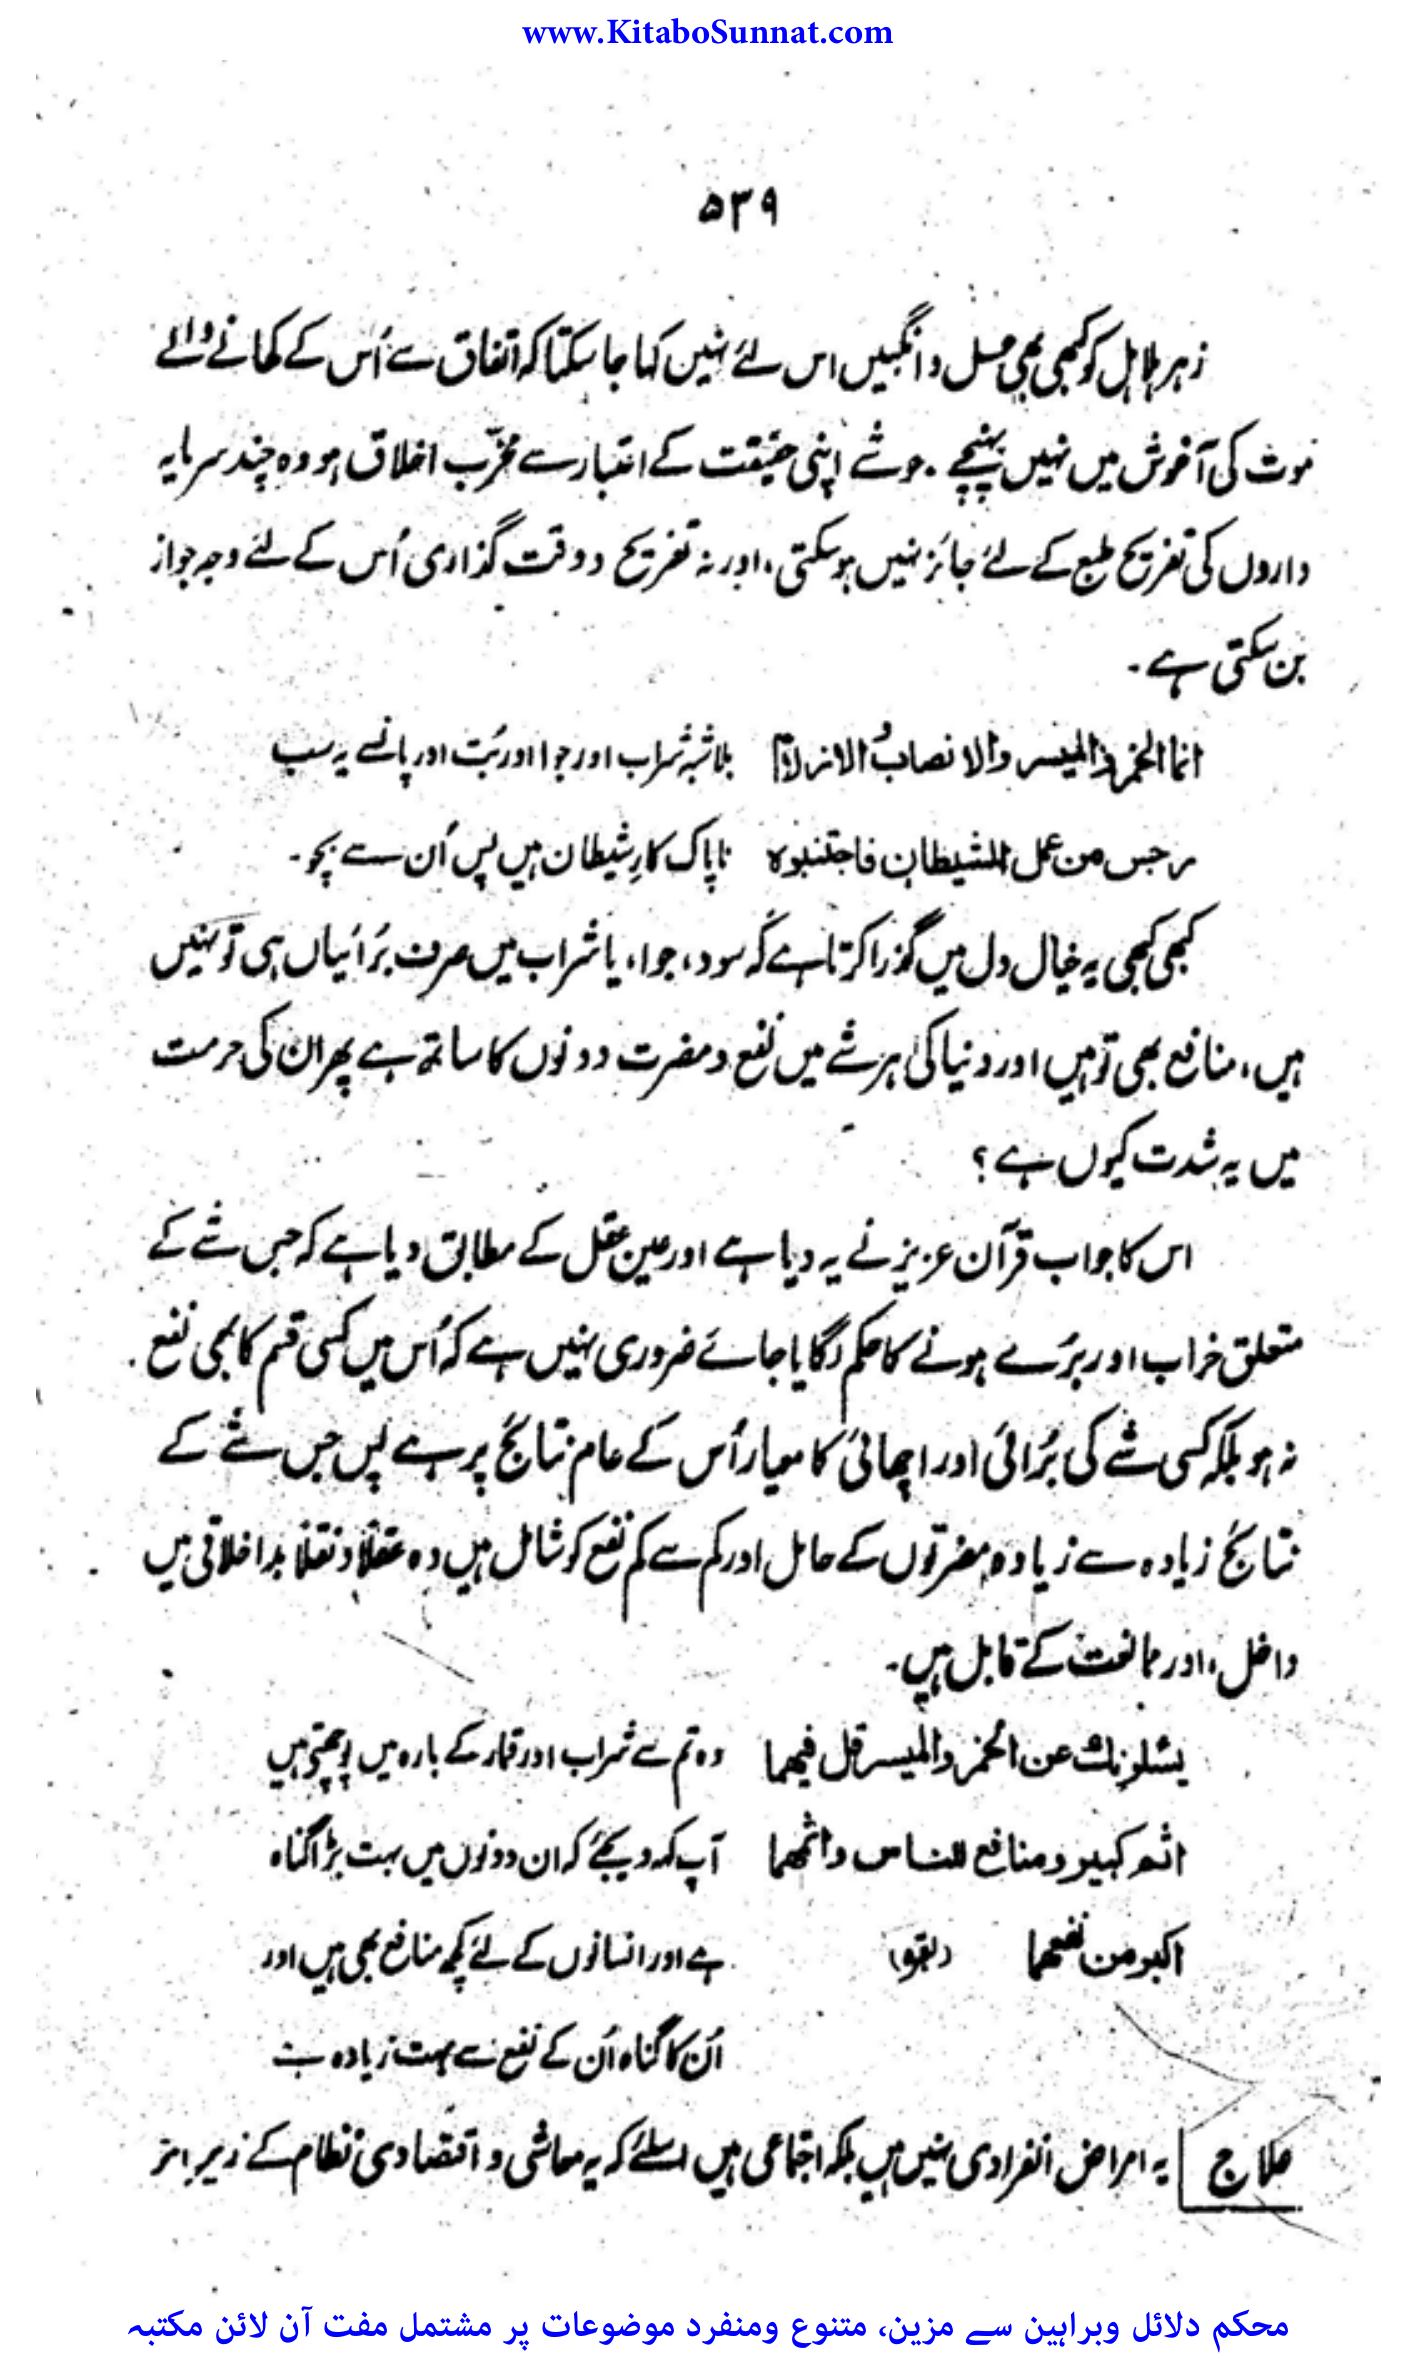 www.KitaboSunnat.com
۵۳۹
زہر ہلاہل کو کبھی بھی عسل و انگبیں اس لئے نہیں کہا جا سکتا کہ اتفاق سے اُس کے کھانے والے
موت کی آغوش میں نہیں پہنچے۔ جو شے اپنی حقیقت کے اعتبار سے مخرّب اخلاق ہو وہ چند سرمایہ
داروں کی تفریح طبع کے لئے جائز نہیں ہو سکتی، اور نہ تفریح و وقت گذاری اُس کے لئے وجہ جواز
بن سکتی ہے۔
انما الخمر والمیسر والانصاب والازلام بلاشبہ شراب اور جوا اور بُت اور پانسے یہ سب
رجس من عمل الشیطان فاجتنبوہ ناپاک کارِ شیطان ہیں پس اُن سے بچو۔
کبھی کبھی یہ خیال دل میں گذرا کرتا ہے کہ سود، جوا، یا شراب میں صرف بُرائیاں ہی تو نہیں
ہیں، منافع بھی تو ہیں اور دنیا کی ہر شے میں نفع و مضرت دونوں کا ساتھ ہے پھر ان کی حرمت
میں یہ شدت کیوں ہے؟
اس کا جواب قرآن عزیز نے یہ دیا ہے اور عین عقل کے مطابق دیا ہے کہ جس شے کے
متعلق خراب اور بُرے ہونے کا حکم لگایا جائے ضروری نہیں ہے کہ اُس میں کسی قسم کا بھی نفع
نہ ہو بلکہ کسی شے کی بُرائی اور اچھائی کا معیار اُس کے عام نتائج پر ہے پس جس شے کے
نتائج زیادہ سے زیادہ مضرتوں کے حامل اور کم سے کم نفع کو شامل ہیں وہ عقلاً و نقلاً بداخلاقی میں
داخل، اور ممانعت کے قابل ہیں۔
یسئلونك عن الخمر والمیسر قل فیھما وہ تم سے شراب اور قمار کے بارہ میں پوچھتے ہیں
اثم کبیر ومنافع للناس واثمھما آپ کہہ دیجئے کہ ان دونوں میں بہت بڑا گناہ
اکبر من نفعھما (بقرہ) ہے اور انسانوں کے لئے کچھ منافع بھی ہیں اور
اُن کا گناہ اُن کے نفع سے بہت زیادہ ہے
علاج یہ امراض انفرادی نہیں ہیں بلکہ اجتماعی ہیں اسلئے کہ یہ معاشی و اقتصادی نظام کے زیر اثر
محکم دلائل وبراہین سے مزین، متنوع ومنفرد موضوعات پر مشتمل مفت آن لائن مکتبہ